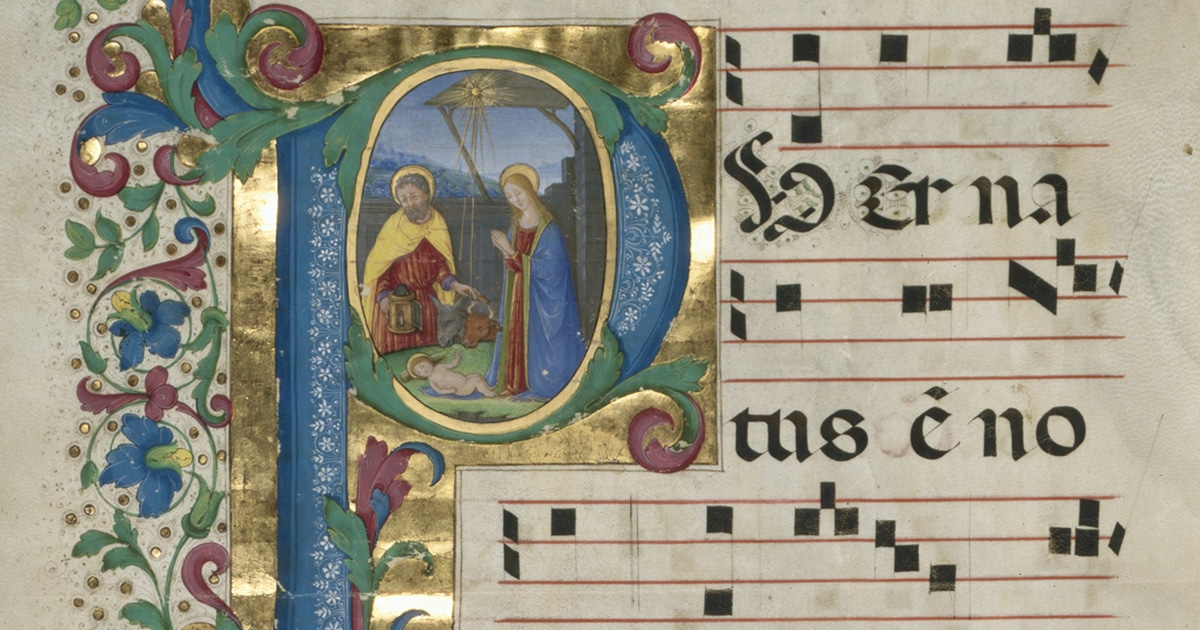 PUer na
tus ē no